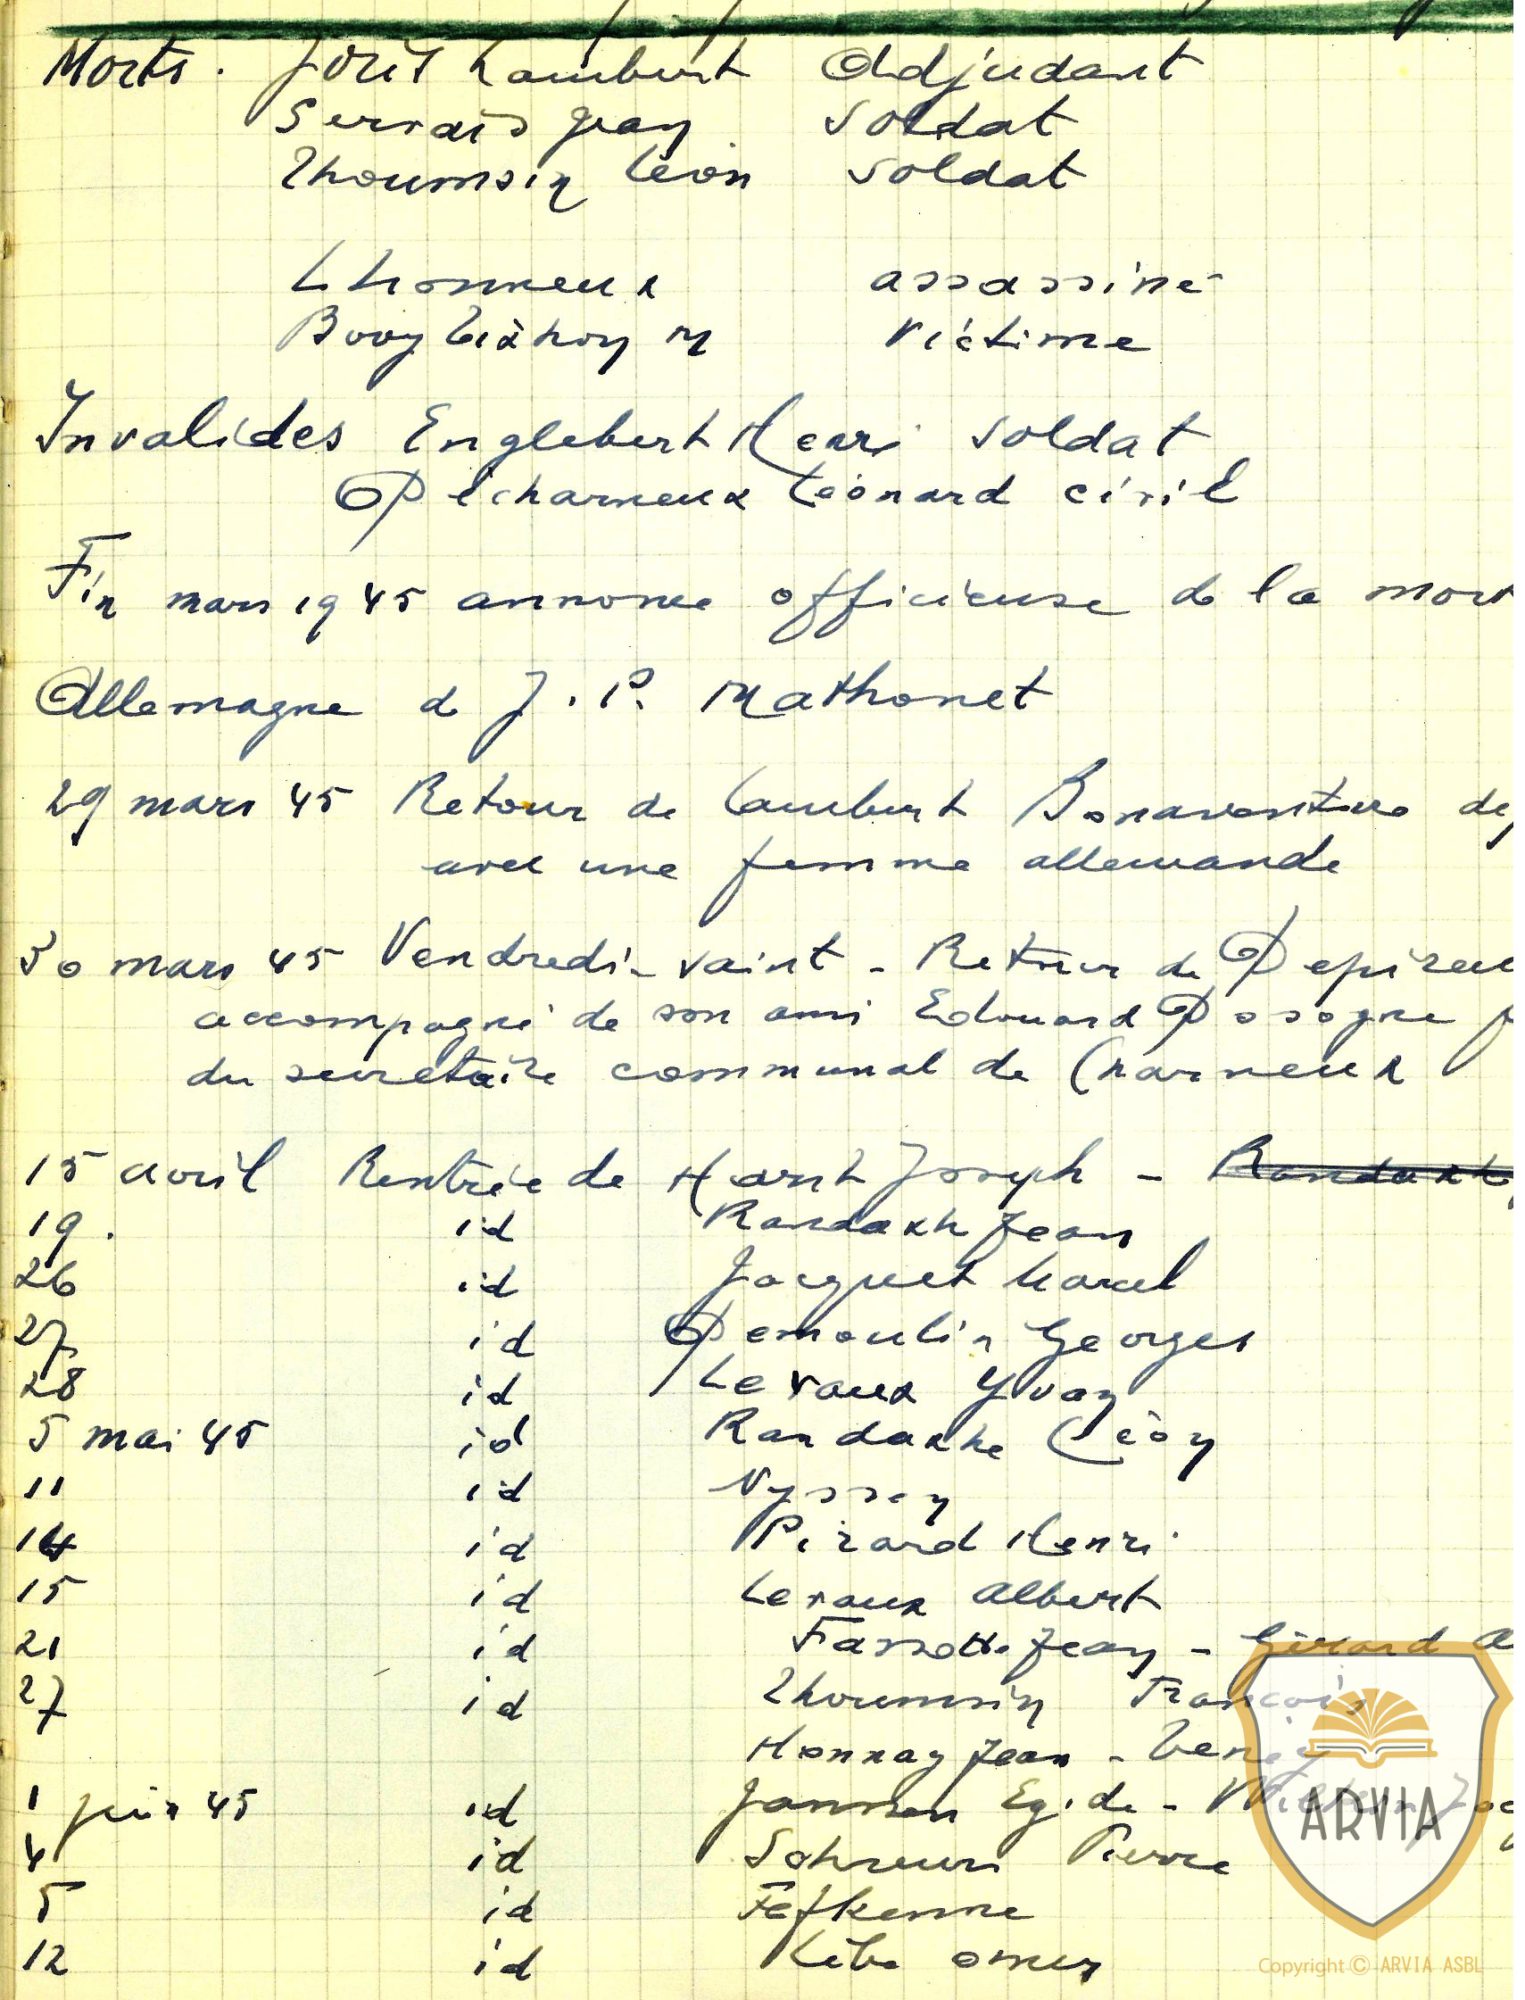 Morts. Joris Lambert Adjudant
Servais Jean Soldat
Thoumsin Léon Soldat
Lhonneux assassiné
Booy M Victime
Invalides Englebert Henri Soldat
Decharneux Léonard civil
Fin mars 1945 annonce officieuse de la mort
Allemagne de J. P. Mathonet
29 mars 45 Retour de Lambert Bonaventure de
avec une femme allemande
30 mars 45 Vendredi-saint - Retour de Depireu
accompagné de son ami Edouard Dosogne
du secrétaire communal de Charneux
15 avril Rentrée de Joseph -
19. id Randaxhe Jean
26 id Jacquet Marcel
27 id Demoulin Georges
28 id Levaux Yvan
5 mai 45 id Randaxhe Léon
11 id Nyssen
14 id Pirard Henri
15 id Levaux Albert
21 id Fassotte Jean - Gérard A
27 id Thoumsin François
Honnay Jean -
1 juin 45 id Janssen Egide -
4 id Schreurs Pierre
5 id Fefkenne
12 id Omer
ARVIA
Copyright © ARVIA ASBL